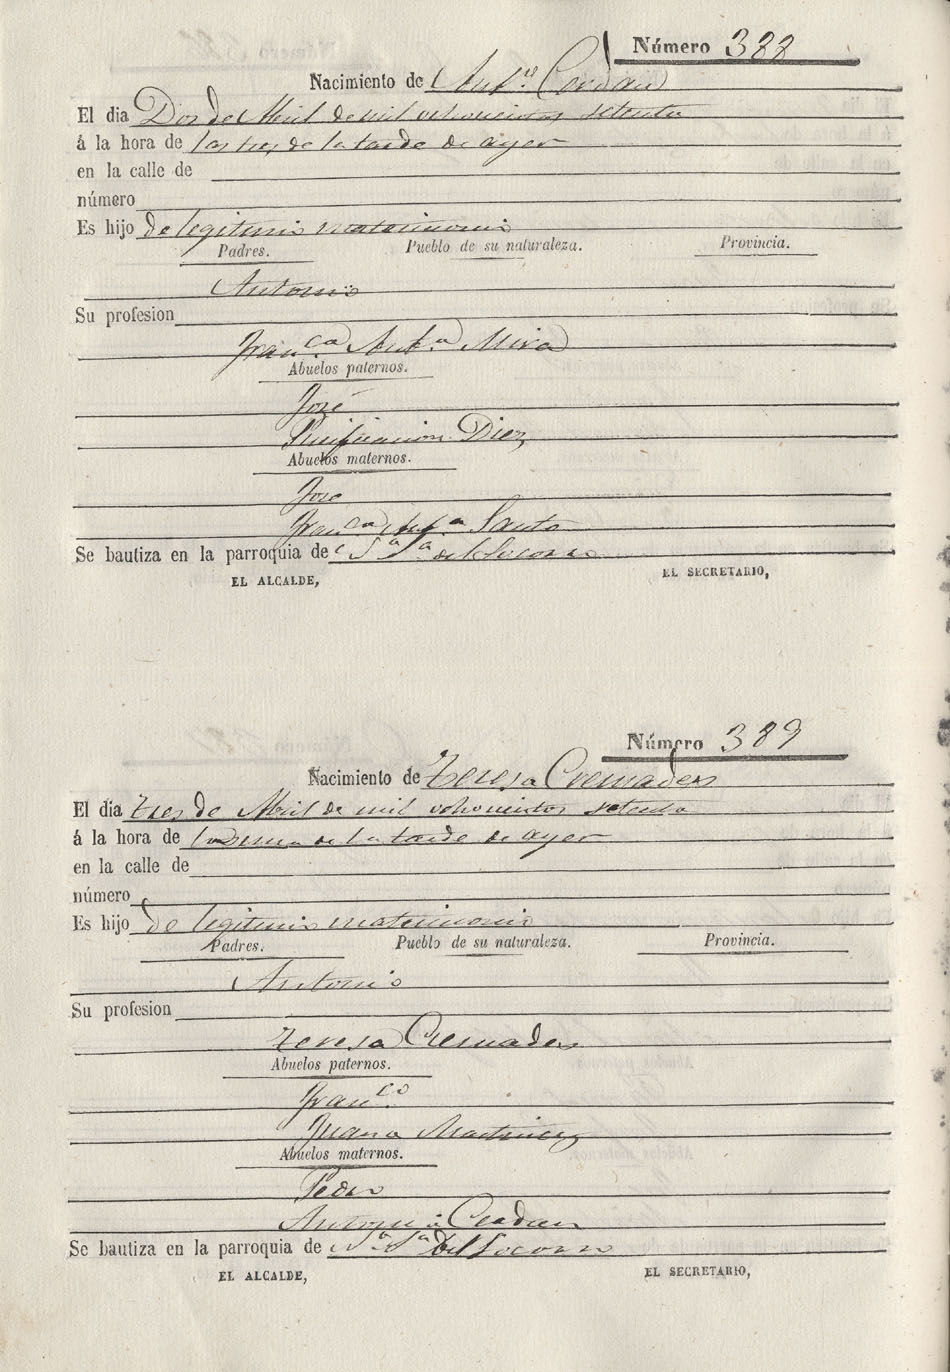 Número 388
Nacimiento de Antº. Cerdan
El dia Dos de Abril de mil ochocientos setenta
á la hora de las tres de la tarde de ayer
en la calle de
número
Es hijo de legitimo matrimonio
Padres. Pueblo de su naturaleza. Provincia.
Antonio
Su profesion
Franca. Anta. Mira
Abuelos paternos.
José
Purificacion Diez
Abuelos maternos.
José
Franca Anta Santo
Se bautiza en la parroquia de Na Sa del Socorro
EL ALCALDE, EL SECRETARIO,
Número 389
Nacimiento de Teresa Cremades
El dia Tres de Abril de mil ochocientos setenta
á la hora de la una de la tarde de ayer
en la calle de
número
Es hijo de legitimo matrimonio
Padres. Pueblo de su naturaleza. Provincia.
Antonio
Su profesion
Teresa Cremades
Abuelos paternos.
Franco.
Juana Martinez
Abuelos maternos.
Pedro
Antonia
Se bautiza en la parroquia de Na Sa del Socorro
EL ALCALDE, EL SECRETARIO,